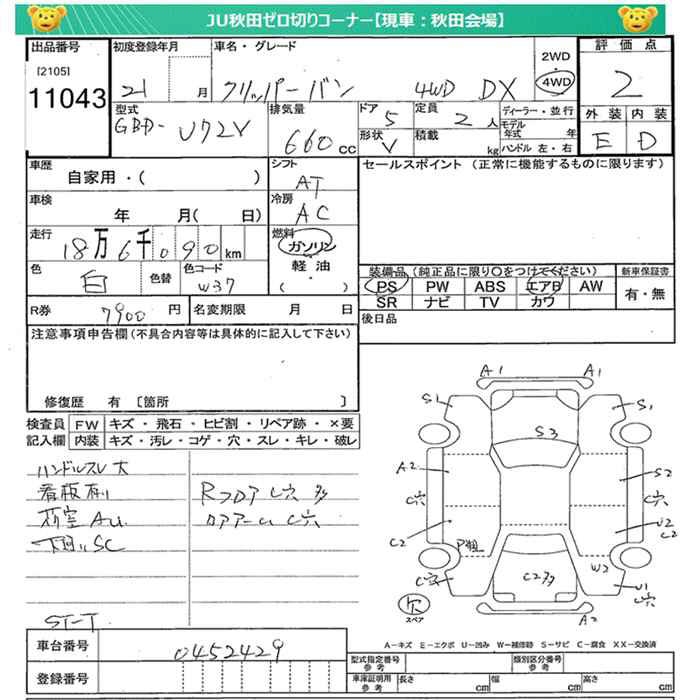 JU秋田ゼロ切りコーナー【現車：秋田会場】
出品番号 初度登録年月 車名・グレード 2WD 4WD 評価点
[2105]
11043 21 月 クリッパーバン 4WD DX 2
型式 GBD-U72V 排気量 660cc ドア 5 定員 2人 ディーラー・並行
形状 V 積載 kg モデル年式 年 ハンドル 左・右
外装 内装
E D
車歴 自家用・( ) シフト AT セールスポイント (正常に機能するものに限ります)
車検 年 月( 日) 冷房 AC
走行 18万6千090km 燃料 ガソリン 軽油 ( ・ )
色 白 色替 色コード W37
装備品 (純正品に限り〇をつけてください) 新車保証書
PS PW ABS エアB AW 有・無
SR ナビ TV カワ
R券 7900円 名変期限 月 日 後日品
注意事項申告欄 (不具合内容等は具体的に記入して下さい)
修復歴 有 [箇所 ]
検査員記入欄 FW キズ・飛石・ヒビ割・リペア跡・×要
内装 キズ・汚レ・コゲ・穴・スレ・キレ・破レ
ハンドルスレ大
看板有り
Rフロア C穴 多
C穴
下廻りSC
ST-T
A1 A1
S1 S1
S3
A2 S2
C穴 C穴
C2 U2
C2
P粗 W2
C2多
C穴 U1
C穴
欠
スペア
A2
A－キズ E－エクボ U－凹み W－補修跡 S－サビ C－腐食 XX－交換済
車台番号 0452429
登録番号
型式指定番号 参考 類別区分番号 参考
車庫証明用 参考 長さ cm 幅 cm 高さ cm